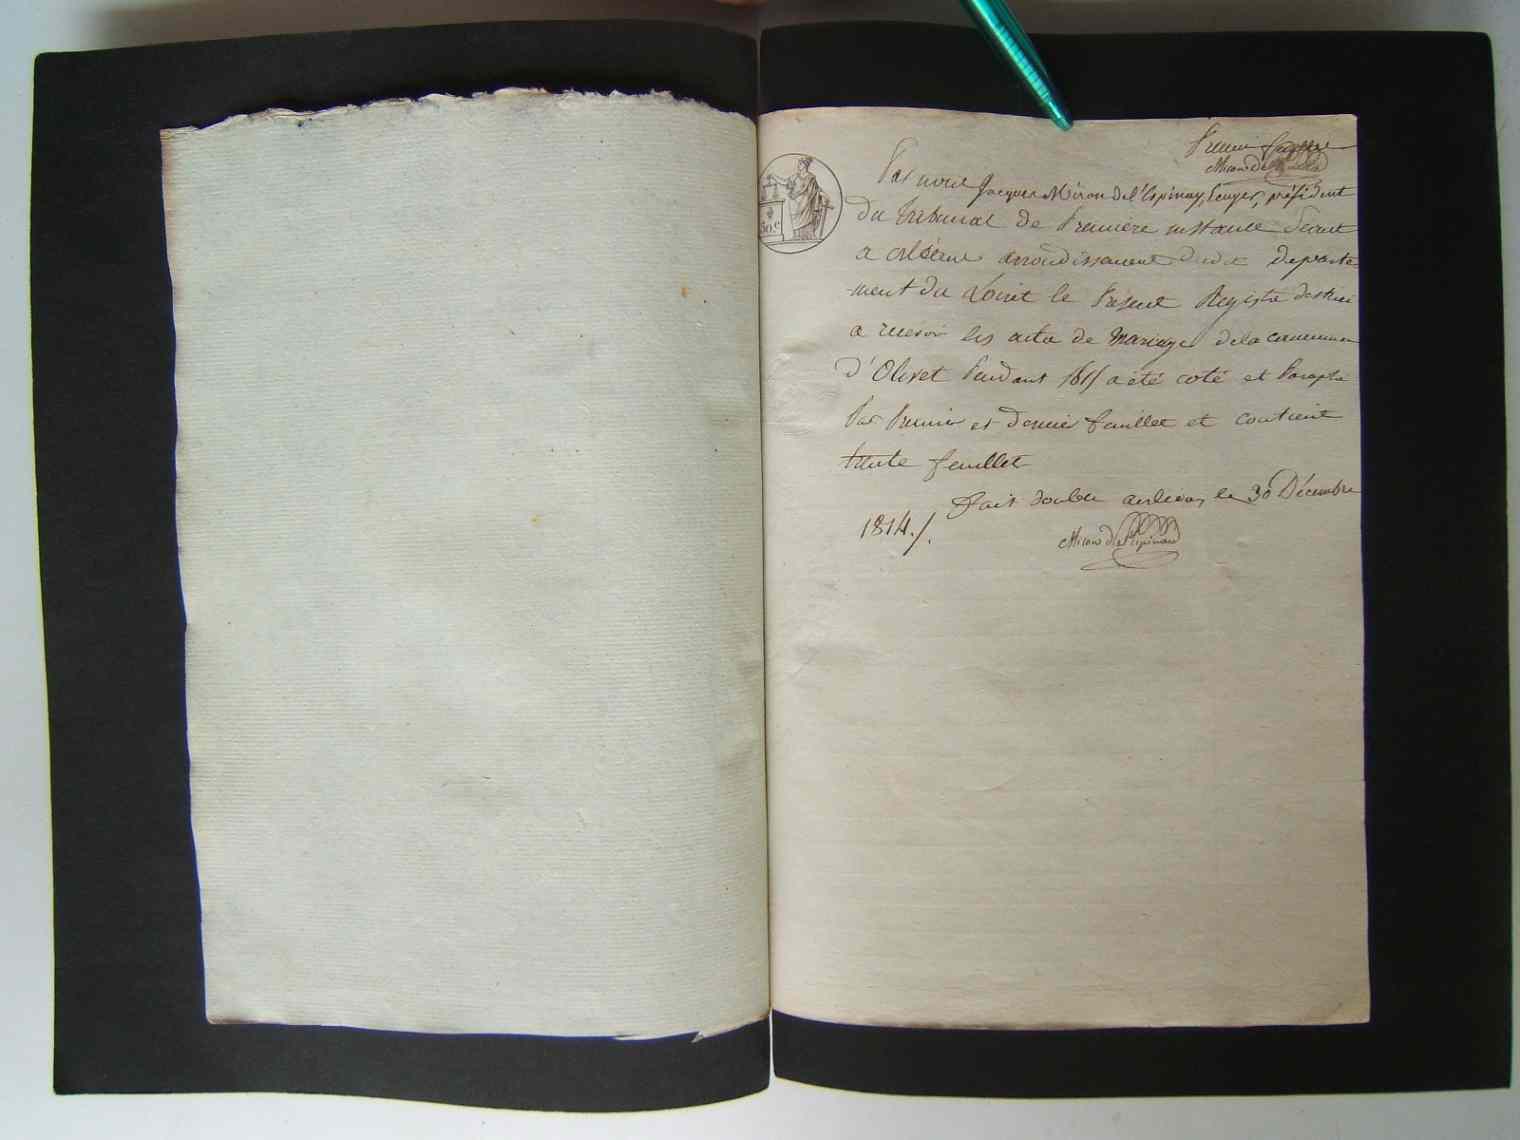 Premier feuillet
Miron de l'Espinay
Par nous Jacques Miron de l'Espinay, Ecuyer, président
du tribunal de Premiere instance séant
a orléans arrondissement dudit departe
-ment du Loiret le Présent Registre destiné
a recevoir les actes de Mariage de la commune
d'Olivet Pendant 1815 a été coté et Paraphé
Par Premier et dernier feuillet et contient
trente feuillet
Fait double a orléans, le 30 Décembre
1814./.
Miron de l'Espinay
50.c